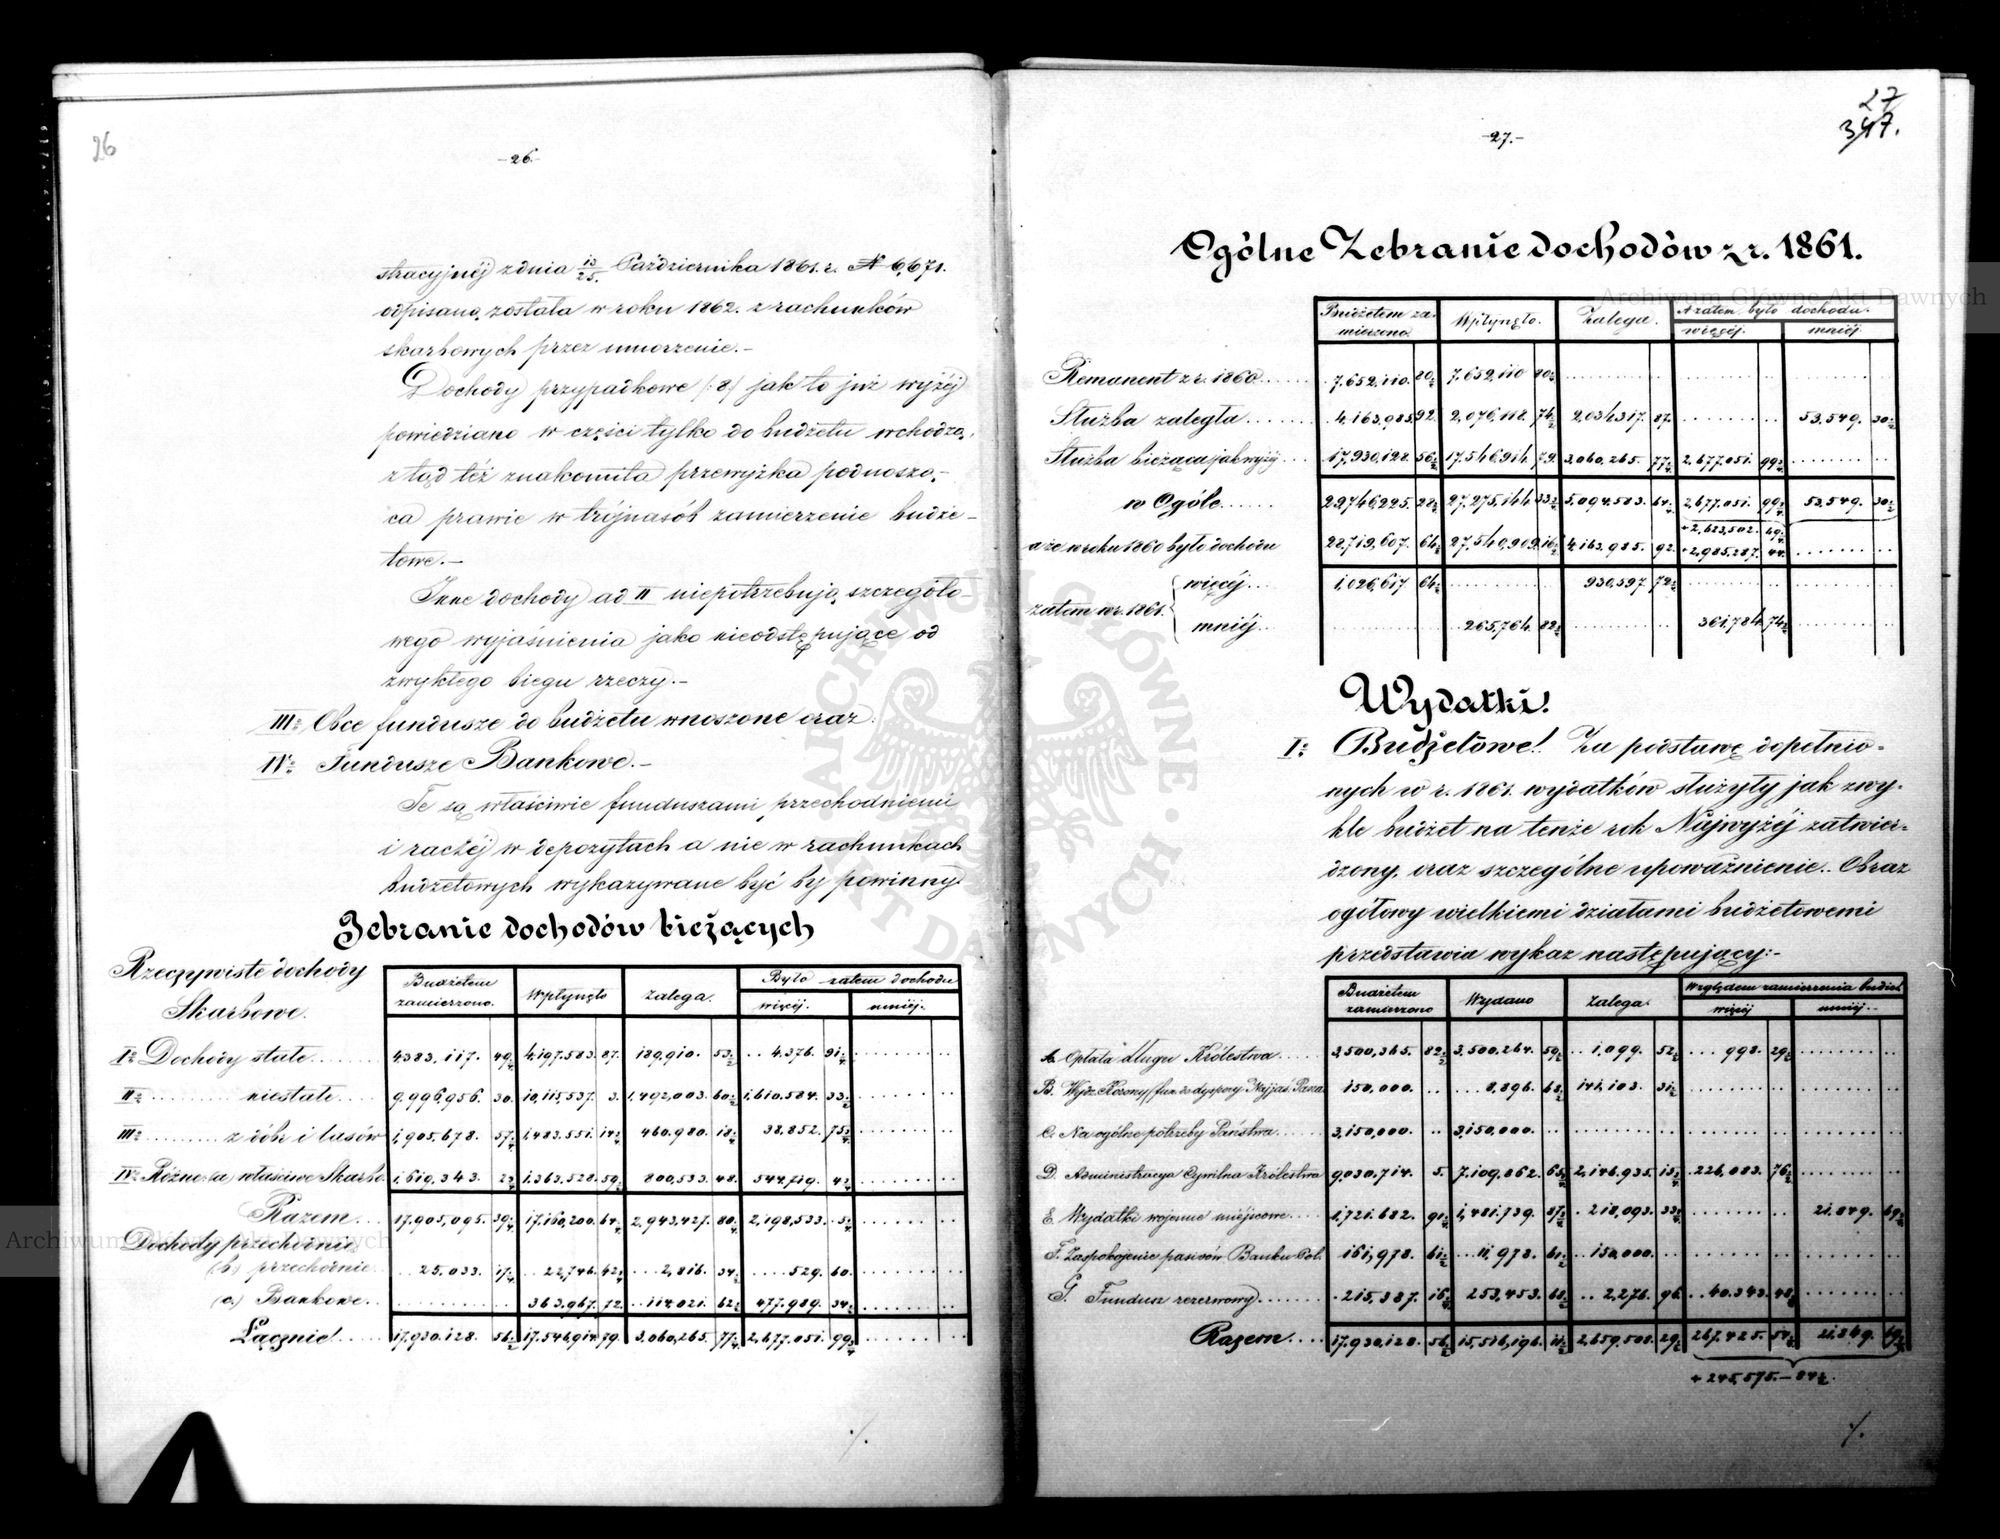 26
-26-
stracyjnéj z dnia 13/25 Października 1861. r. N 6,671.
odpisaną została w roku 1862. z rachunków
skarbowych przez umorzenie.-
Dochody przypadkowe (:8:) jak to już wyżéj
powiedziano w części tylko do budżetu wchodzą,
z tąd téż znakomita przewyżka podnoszą-
ca prawie w trójnasób zamierzenie budże-
towe.-
Inne dochody ad II niepotrzebują szczegóło-
wego wyjaśnienia jako nieodstępujące od
zwykłego biegu rzeczy.-
III: Obce fundusze do budżetu wnoszone oraz
IV: Fundusze Bankowe.-
Te są właściwie funduszami przechodniemi
i raczéj w depozytach a nie w rachunkach
budżetowych wykazywane być by powinny.
Zebranie dochodów bieżących
Rzeczywiste dochody
Skarbowe.
Budżetem zamierzono. Wpłynęło Zalega. Było zatem dochodu
więcéj. mniéj.
I: Dochody stałe 4383,117. 4,197.583. 87. 189,910. 4.376.
II: niestałe 9.996,956. 30. 10,115,537. 3. 1,492,003. 1,610.584.
III: z dóbr i lasów 1,905,678. 1,483.551. 460.980. 38,852.
IV: Różne (a) właściwe Skarbo. 1,619,343. 1,363,528. 59. 800,533. 48. 544,719.
Razem 17,905,095. 17,160,200. 2,943,427. 2,198,533.
Dochody przechodnie
(b) przechodnie 25.033. 22,746. 2,816. 529. 60.
(c.) Bankowe 363,967. 72. 114.021. 477.989.
Łącznie! 17,930.128. 17,546,914. 79. 3,060,265. 2,677.051.
27
347.
-27.-
Ogólne Zebranie dochodów z r. 1861.
Budżetem zamierzono Wpłynęło. Zalega. A zatem było dochodu.
więcéj. mniéj
Remanent z r. 1860 7,652,110. 7,652,110
Służba zaległa 4,163,985. 92. 2,076,118. 2,034,317. 87. 53,549.
Służba bieżąca jak wyżéj 17,930,128. 17,546,914. 79. 3,060,265. 2,677.051.
w Ogóle 29,746,225. 27,275,144. 5,094.583. 2,677.051. 53,549.
+2,623,502.
a że w roku 1860 było dochodu 28,719,607. 27,540,909. 4,163,985. 92. +2,985,287.
zatem w r. 1861. więcéj 1,026,617 930,597
mniéj 265,764. 361,784
Wydatki!
I: Budżetowe! Za podstawę dopełnio-
nych w r. 1861 wydatków służyły jak zwy-
kle budżet na tenże rok Najwyżéj zatwier-
dzony, oraz szczególne upoważnienie.. Obraz
ogółowy wielkiemi działami budżetowemi
przedstawia wykaz następujący:-
Budżetem zamierzono Wydano Zalega. Względem zamierzenia budżet.
więcéj mniéj.
A. Opłata długu Królestwa 3,500,365. 3,500,264. 1,099. 998.
B. 150,000. 8,896. 141,103.
C. Na ogólne potrzeby Państwa 3,150,000. 3,150,000.
D. Administracya Cywilna Królestwa 9,030,714. 5. 7,109,862. 2,146,935. 226,083.
E. Wydatki wojenne miejscowe 1,721.682. 1,481.739. 218,093. 21.849.
F. Zaspokojenie passivów Banku Pol. 161,978. 11,978. 150,000.
G. Fundusz rezerwowy 215,387. 253,453. 2,276. 96. 40.343.
Razem 17,930,128. 15,516,196. 2,659,508. 267,425. 21,849.
+ 245,575.-
./.
./.
Archiwum Główne Akt Dawnych
Archiwum Główne Akt Dawnych
ARCHIWUM GŁÓWNE AKT DAWNYCH